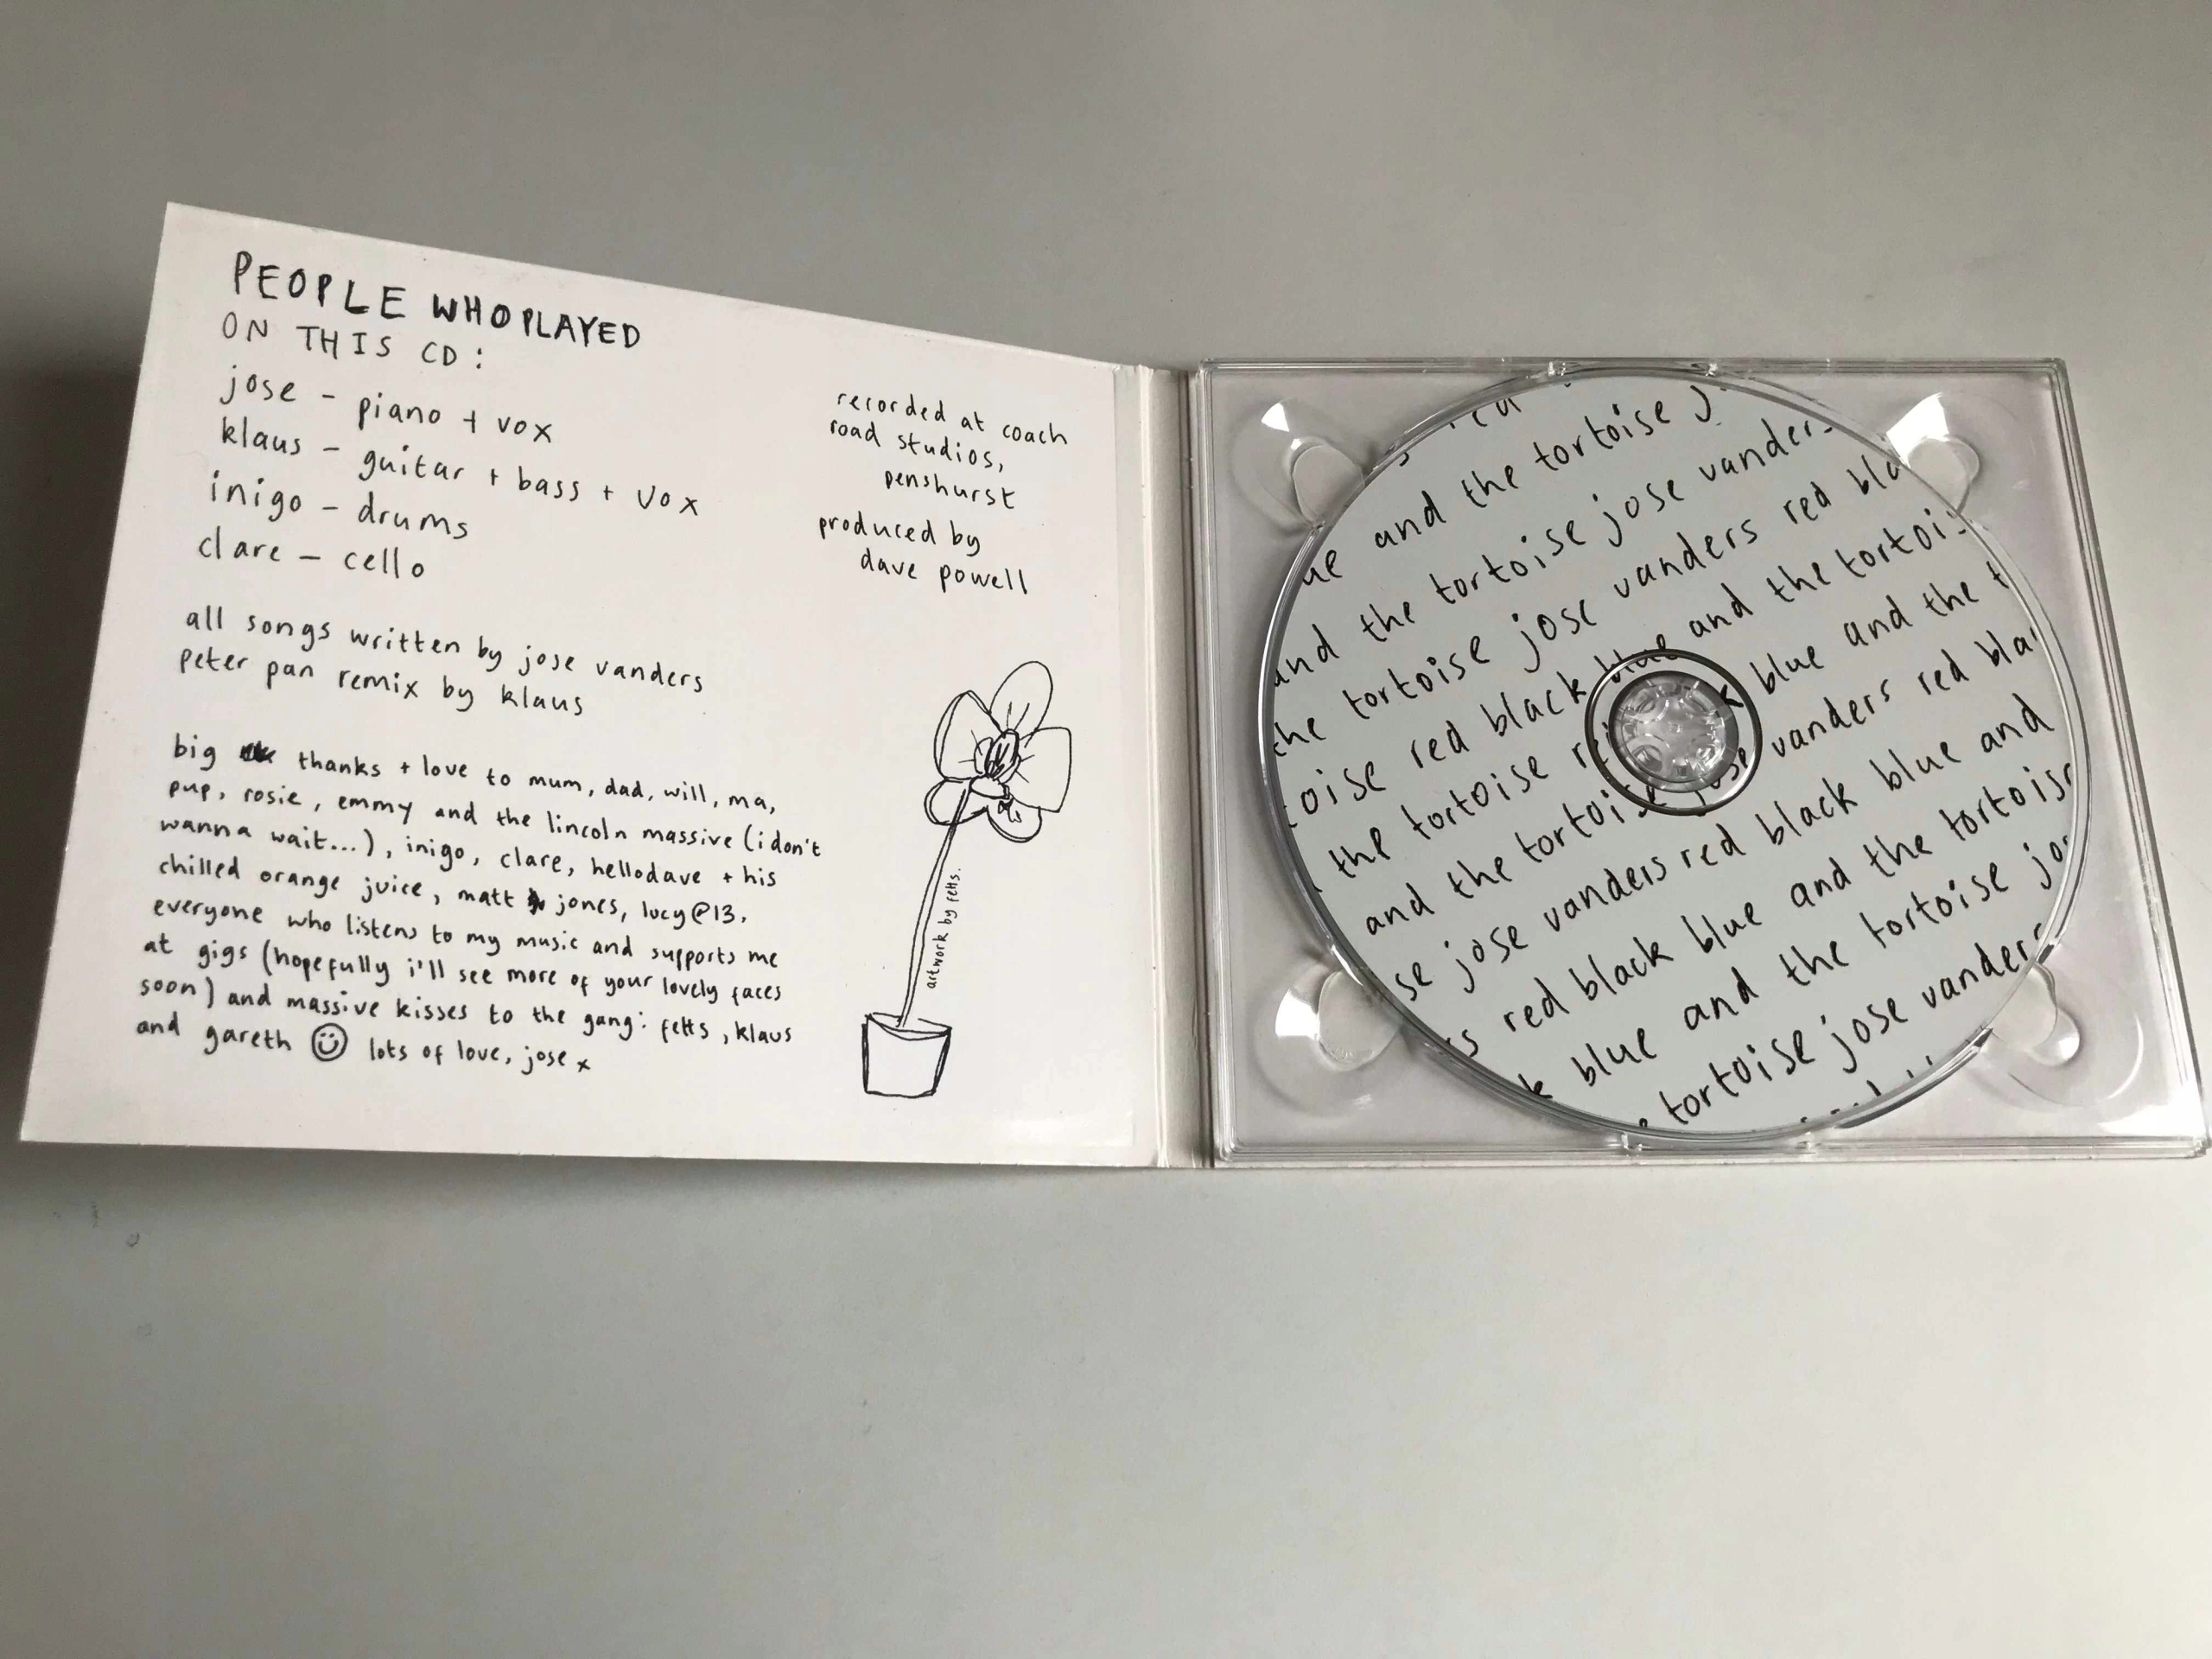 PEOPLE WHO PLAYED
ON THIS CD:
jose - piano + vox
klaus - guitar + bass + vox
inigo - drums
clare - cello
all songs written by jose vanders
peter pan remix by klaus
big thanks + love to mum, dad, will, ma,
pup, rosie, emmy and the lincoln massive (i don't
wanna wait...), inigo, clare, hellodave + his
chilled orange juice, matt jones, lucy@13,
everyone who listens to my music and supports me
at gigs (hopefully i'll see more of your lovely faces
soon) and massive kisses to the gang: fetts, klaus
and gareth ☺ lots of love, jose x
recorded at coach
road studios,
penshurst
produced by
dave powell
artwork by fetts.
ue and the tortoise j
and the tortoise jose vanders
the tortoise jose vanders red bla
toise red black blue and the tortois
the tortoise re k blue and the t
and the tortoise jose vanders red bla
se jose vanders red black blue and
s red black blue and the tortoise
k blue and the tortoise jos
e tortoise jose vanders